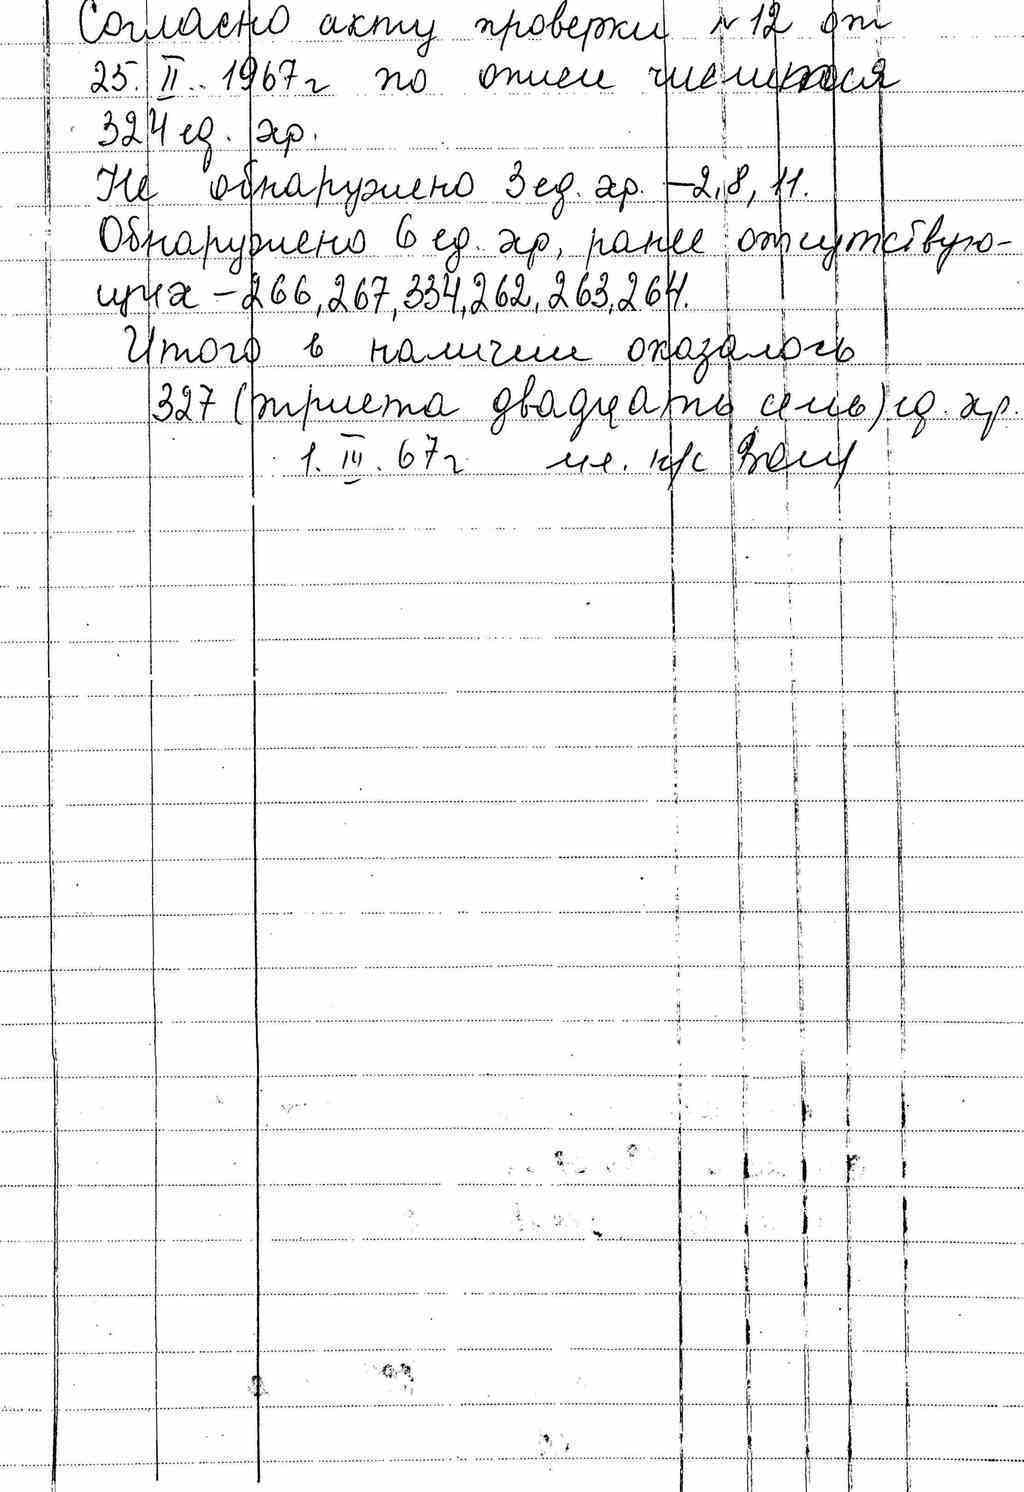 Согласно акту проверки № 12 от
25. II. 1967 г по описи числилося
324 ед. хр.
Не обнаружено 3 ед. хр. – 2, 8, 11.
Обнаружено 6 ед. хр, ранее отсутствую-
щих – 266, 267, 334, 262, 263, 264.
Итого в наличии оказалось
327 (триста двадцать семь) ед. хр.
1. III. 67 г мл. н/с